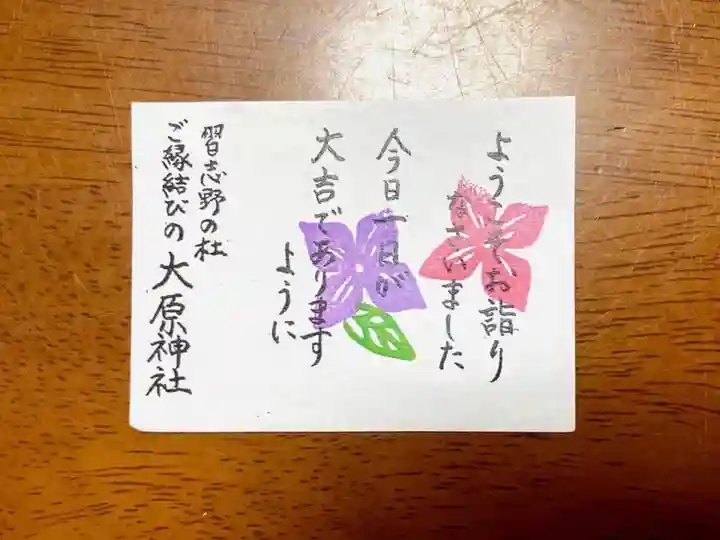 ようこそお詣り
なさいました
今日一日が
大吉であります
ように
習志野の杜
ご縁結びの 大原神社